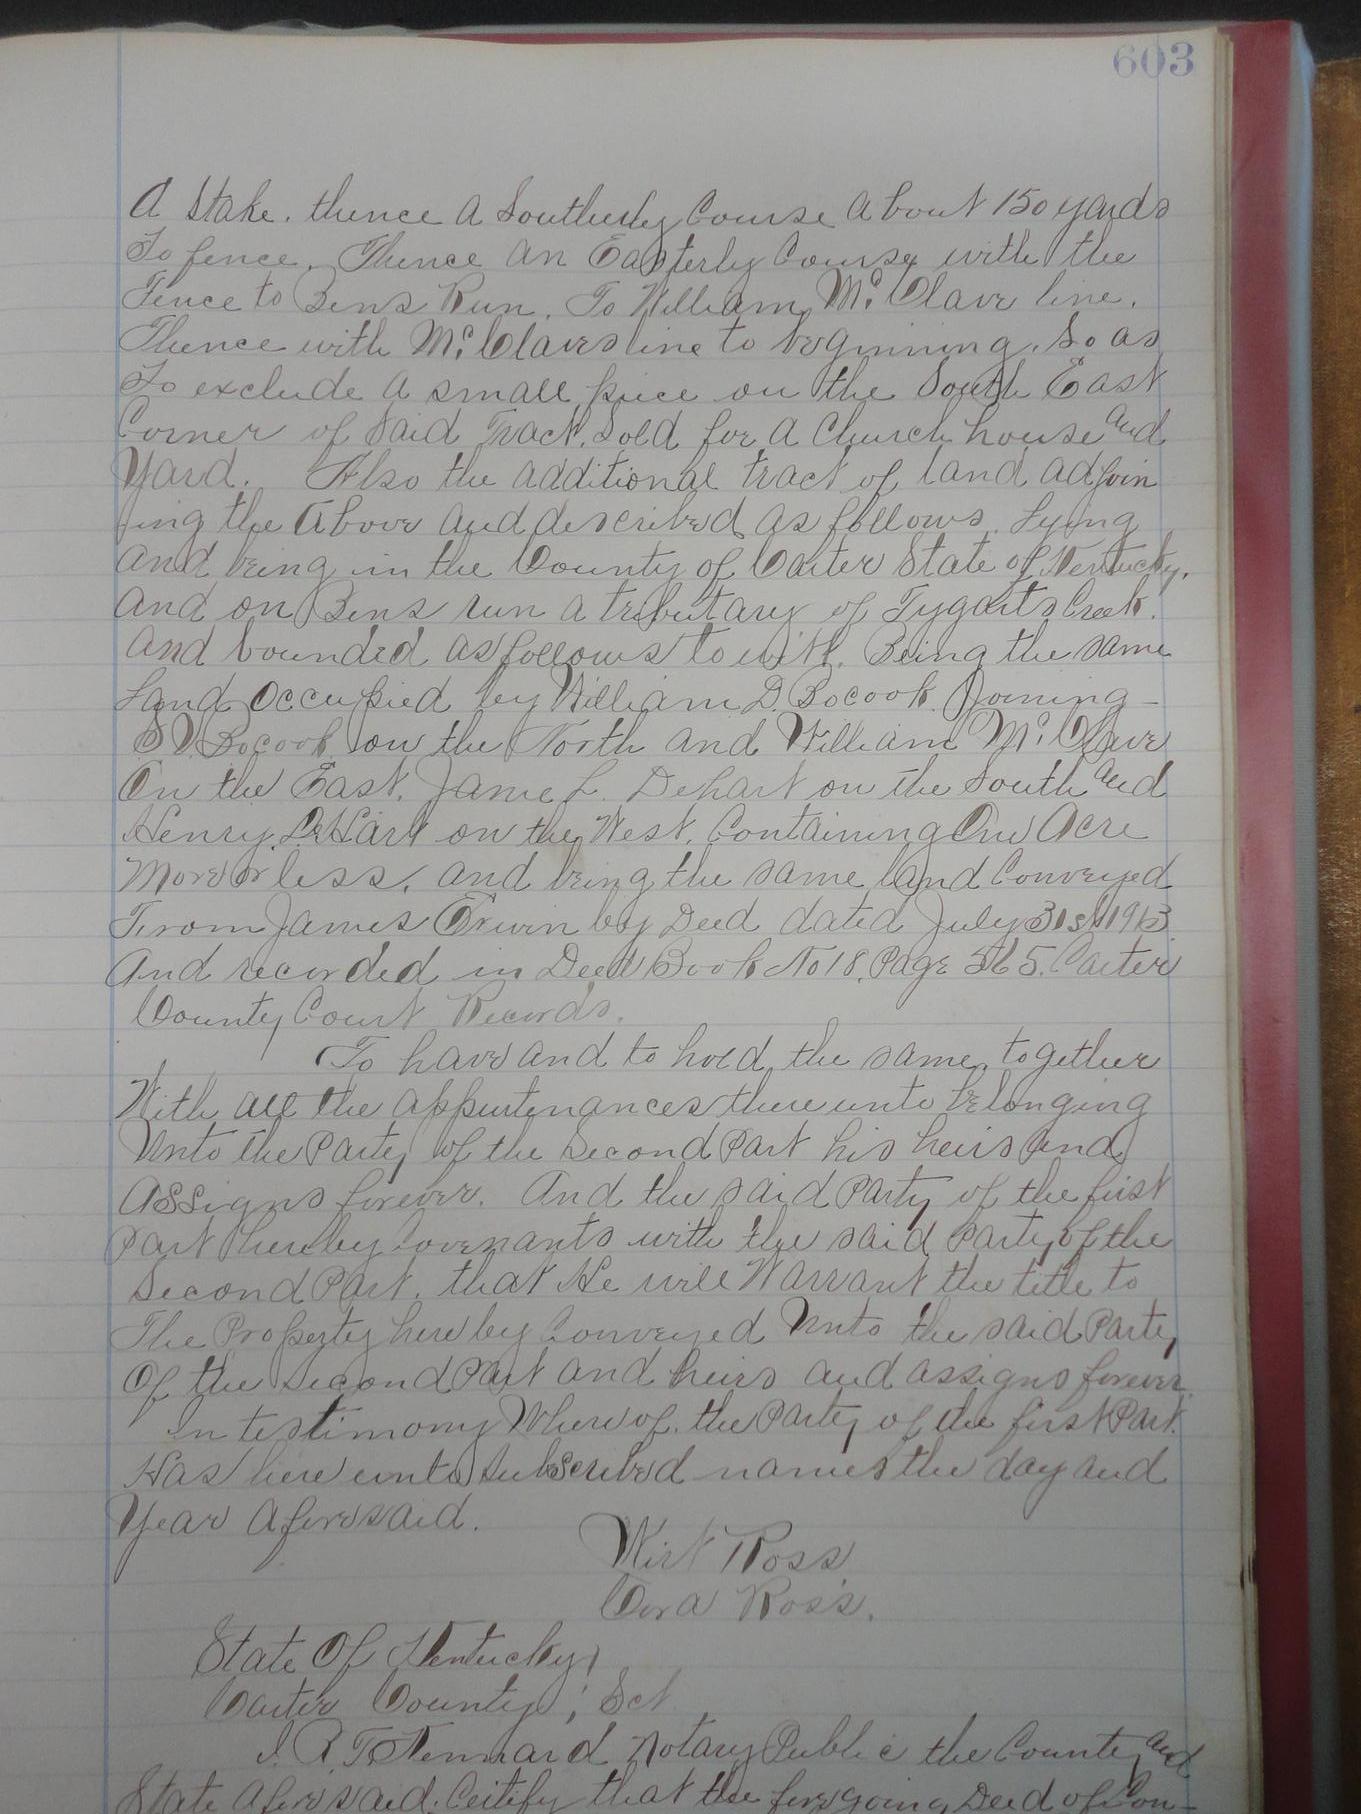 603
A Stake. thence A Southerly Course About 150 yards
To fence. Thence an Easterly Course with the
Fence to Bens Run. To William McClave line.
Thence with McClaves line to beginning. So as
To exclude A small piece on the South East
Corner of Said Tract. Sold for A Church house and
Yard. Also the additional tract of land adjoin
ing the Above and described as follows. Lying
And being in the County of Carter State of Kentucky.
And on Bens run a tributary of Tygarts Creek.
And bounded as follows to wit. Being the same
Land Occupied by William D. Bocook Joining
S V Bocook on the North and William McClave
On the East. James L. Dehart on the South and
Henry DeHart on the West. Containing One Acre
More or less. and being the same land Conveyed
From James Erwin by Deed dated July 31st 1913
And recorded in Deed Book No 18. Page Carter
County Court Records.
To have and to hold the same, together
With all the appurtenances there unto belonging
Unto the Party of the Second Part his heirs and
Assigns forever. And the said Party of the first
Part hereby Covenants with the said Party of the
Second Part. that He will Warrant the title to
The Property hereby Conveyed Unto the said Party
Of the Second Part and heirs and assigns forever.
In testimony Whereof. the Party of the first Part.
Has here unto subscribed names the day and
Year Aforesaid.
Wirt Ross
Cora Ross.
State Of Kentucky)
Carter County ; Sct
I. R. T. Kennard Notary Public the County and
State Aforesaid. Certify that the forgoing Deed of Con-